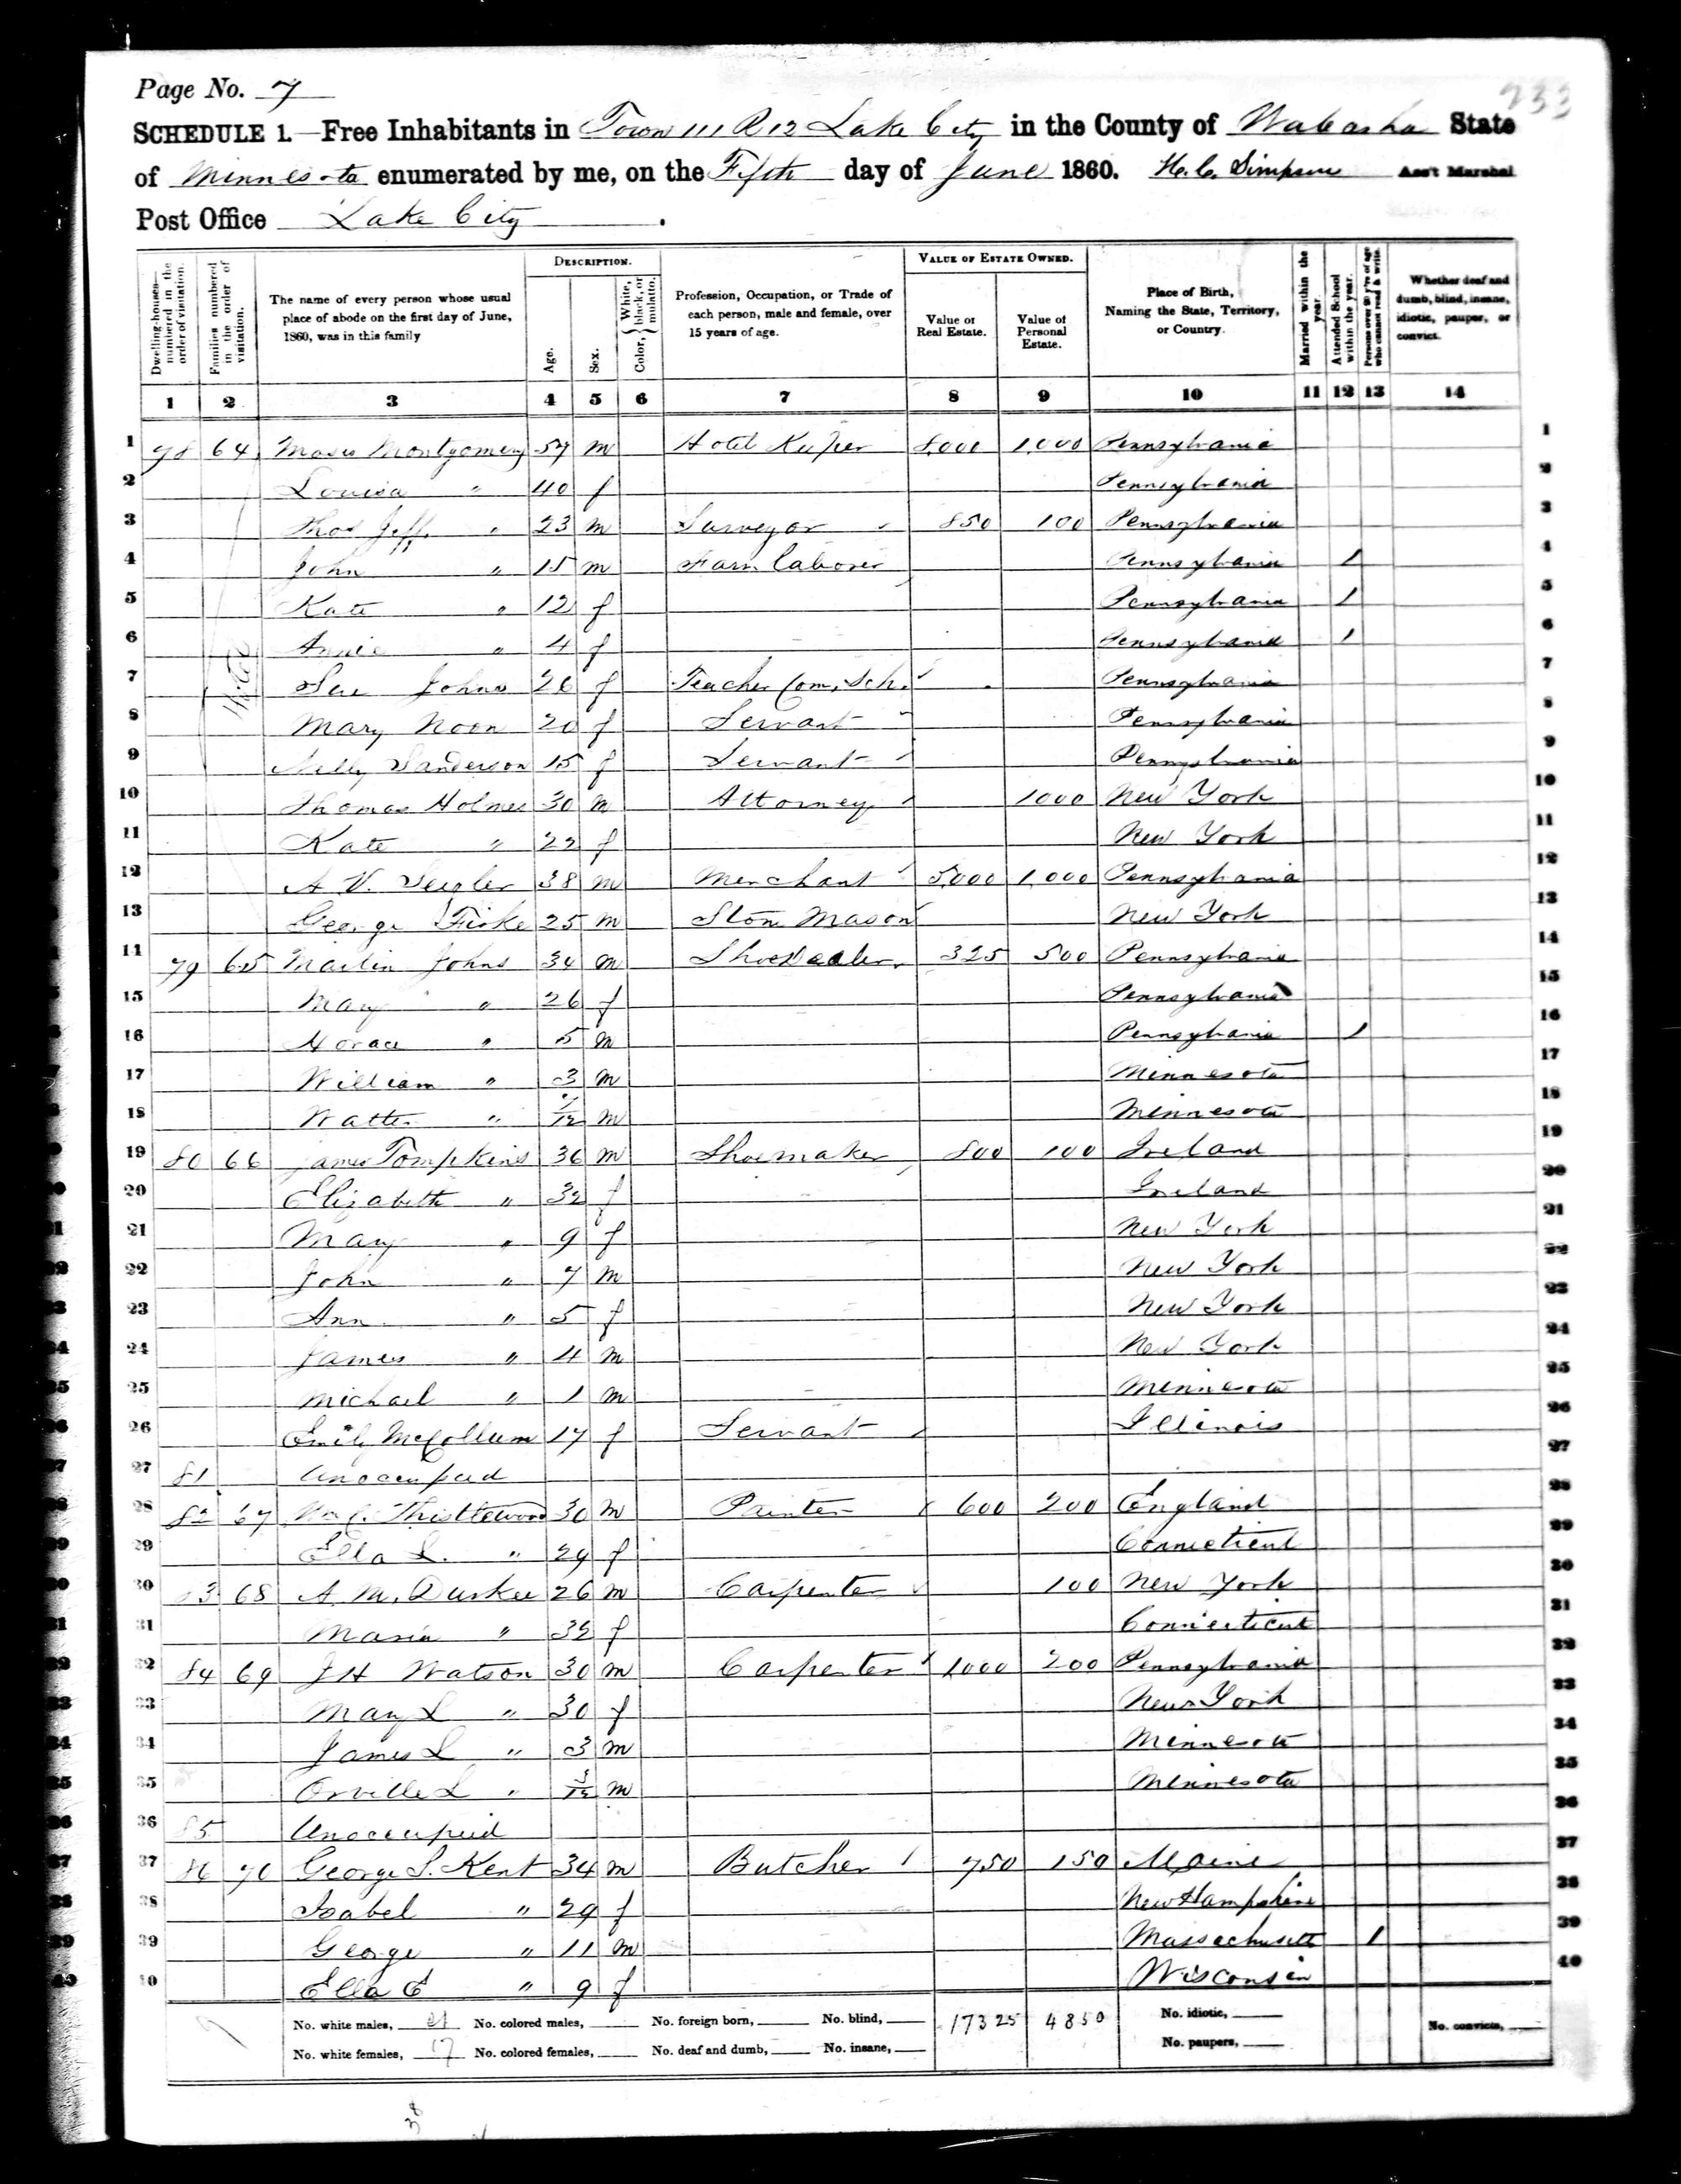 Page No. 7
233
SCHEDULE 1.—Free Inhabitants in Town 111 R 12 Lake City in the County of Wabasha State
of Minnesota enumerated by me, on the Fifth day of June 1860. H. C. Simpson Ass't Marshal
Post Office Lake City .
Dwelling-houses—numbered in the order of visitation. Families numbered in the order of visitation. The name of every person whose usual place of abode on the first day of June, 1860, was in this family DESCRIPTION. Age. Sex. Color, { White, black, or mulatto. Profession, Occupation, or Trade of each person, male and female, over 15 years of age. VALUE OF ESTATE OWNED. Value of Real Estate. Value of Personal Estate. Place of Birth, Naming the State, Territory, or Country. Married within the year. Attended School within the year. Persons over 20 y'rs of age who cannot read & write. Whether deaf and dumb, blind, insane, idiotic, pauper, or convict.
1 2 3 4 5 6 7 8 9 10 11 12 13 14
1 78 64 Moses Montgomery 57 m Hotel Keeper 8,000 1,000 Pennsylvania 1
2 Louisa " 40 f Pennsylvania 2
3 Thos Jeff. " 23 m Surveyor 850 100 Pennsylvania 3
4 John " 15 m Farm laborer Pennsylvania 1 4
5 Kate " 12 f Pennsylvania 1 5
6 Annie " 4 f Pennsylvania 1 6
7 Sue Johns 26 f Teacher Com. Sch. Pennsylvania 7
8 Mary Noon 20 f Servant Pennsylvania 8
9 Nelly Sanderson 15 f Servant Pennsylvania 9
10 Thomas Holmes 30 m Attorney 1000 New York 10
11 Kate " 22 f New York 11
12 A V. Seigler 38 m Merchant 5,000 1,000 Pennsylvania 12
13 George Fiske 25 m Stone Mason New York 13
14 79 65 Martin Johns 34 m Shoe Dealer 325 500 Pennsylvania 14
15 Mary " 26 f Pennsylvania 15
16 Horace " 5 m Pennsylvania 1 16
17 William " 3 m Minnesota 17
18 Walter " /12 m Minnesota 18
19 80 66 James Tompkins 36 m Shoemaker 800 100 Ireland 19
20 Elizabeth " 32 f Ireland 20
21 Mary " 9 f New York 21
22 John " 7 m New York 22
23 Ann " 5 f New York 23
24 James " 4 m New York 24
25 Michael " 1 m Minnesota 25
26 Emily McCollum 17 f Servant Illinois 26
27 81 Unoccupied 27
28 82 67 Wm C. Thistlewood 30 m Painter 600 200 England 28
29 Ella L. " 29 f Connecticut 29
30 83 68 A. M. Durkee 26 m Carpenter 100 New York 30
31 Maria " 32 f Connecticut 31
32 84 69 J H Watson 30 m Carpenter 1000 200 Pennsylvania 32
33 Mary L " 30 f New York 33
34 James L " 3 m Minnesota 34
35 Orville L " 3/12 m Minnesota 35
36 85 Unoccupied 36
37 86 70 George S. Kent 34 m Butcher 750 150 Maine 37
38 Isabel " 29 f New Hampshire 38
39 George " 11 m Massachusetts 1 39
40 Ella E " 9 f Wisconsin 40
No. white males, 21 No. colored males, No. foreign born, No. blind, 17325 4850 No. idiotic,
No. white females, 17 No. colored females, No. deaf and dumb, No. insane, No. paupers, No. convicts,
38